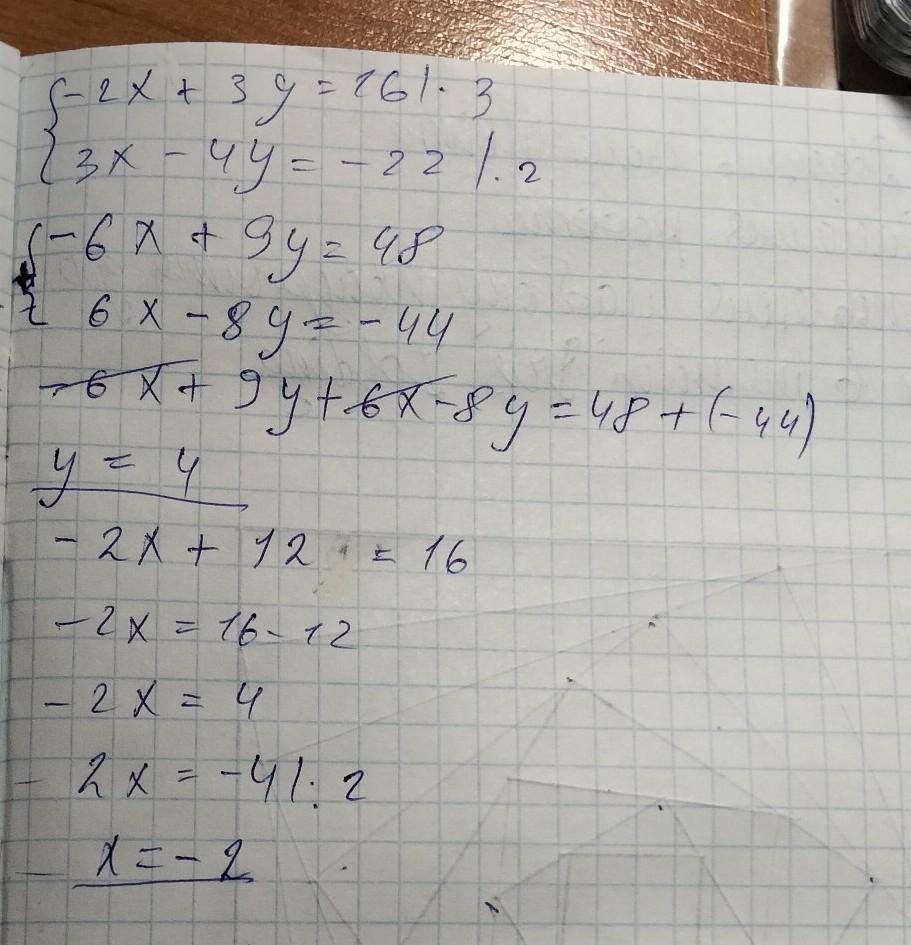 {-2x + 3y = 16 | · 3
{3x - 4y = -22 | · 2
{-6x + 9y = 48
{6x - 8y = -44
-6x + 9y + 6x - 8y = 48 + (-44)
y = 4
-2x + 12 = 16
-2x = 16 - 12
-2x = 4
2x = -4 | : 2
x = -2